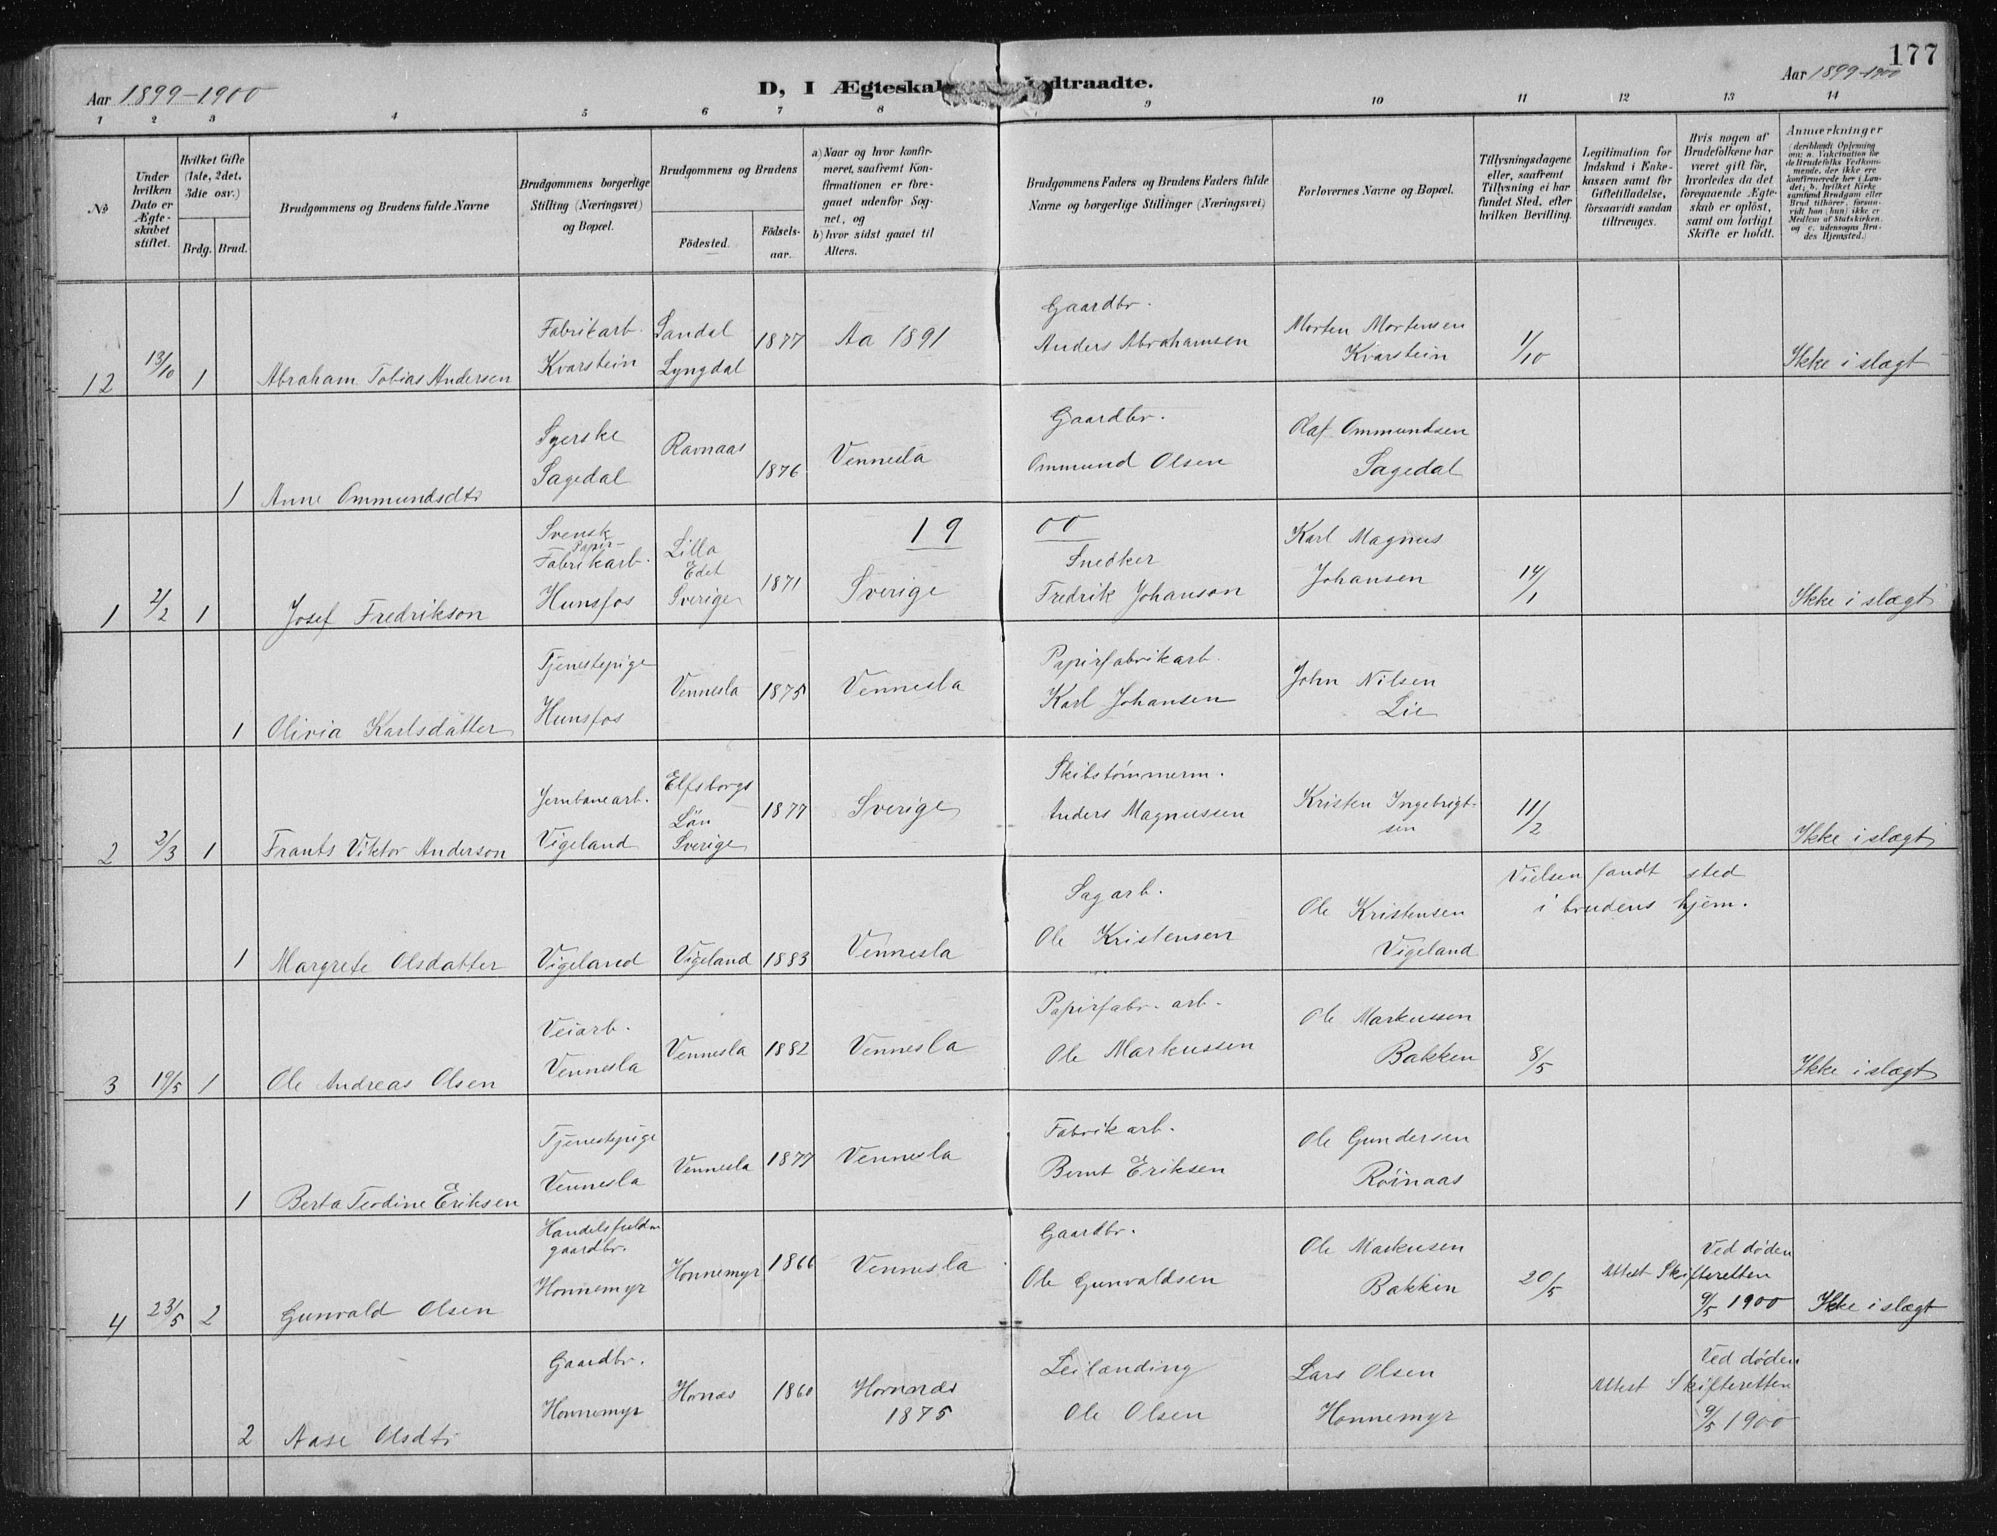 177
Aar 1899-1900
D, I Ægteskab
dtraadte.
Aar 1899-1900
1 2 3 4 5 6 7 8 9 10 11 12 13 14
№
Under hvilken Dato er Ægteskabet stiftet.
Hvilket Gifte (1ste, 2det, 3die osv.)
Brdg. Brud.
Brudgommens og Brudens fulde Navne
Brudgommens borgerlige Stilling (Næringsvei) og Bopæl.
Brudgommens og Brudens
Födested.
Födsels-aar.
a) Naar og hvor konfirmeret, saafremt Konfirmationen er foregaaet udenfor Sognet, og
b) hvor sidst gaaet til Alters.
Brudgommens Faders og Brudens Faders fulde Navne og borgerlige Stillinger (Næringsvei)
Forlovernes Navne og Bopæl.
Tillysningsdagene eller, saafremt Tillysning ei har fundet Sted, efter hvilken Bevilling.
Legitimation for Indskud i Enkekassen samt for Giftetilladelse, forsaavidt saadan tiltrænges.
Hvis nogen af Brudefolkene har været gift för, hvorledes da det foregaaende Ægteskab er oplöst, samt om lovligt Skifte er holdt.
Anmærkninger
(deriblandt Oplysning om: a. Vakcination for de Brudefolks Vedkommende, der ikke ere konfirmerede her i Landet; b. hvilket Kirkesamfund Brudgom eller Brud tilhörer, forsaavidt han (hun) ikke er Medlem af Statskirken, og c. udensogns Brudes Hjemsted.)
12 13/10 1 Abraham Tobias Andersen
Fabrikarb. Kvarstein
Sandal Lyngdal
1877
Aa 1891
Gaardbr. Anders Abrahamsen
Morten Mortensen Kvarstein
1/10
Ikke i slægt
1 Anne Ommundsdtr
Syerske Sagedal
Ravnaas
1876
Vennesla
Gaardbr. Ommund Olsen
Olaf Ommundsen Sagedal
1900
1 2/2 1 Josef Fredrikson
Svensk Papir-Fabrikarb. Hunsfos
Lilla Edet Sverige
1871
Sverige
Snedker Fredrik Johanson
Karl Magnus Johansen
14/1
Ikke i slægt
1 Olivia Karlsdatter
Tjenestepige Hunsfos
Vennesla
1875
Vennesla
Papirfabrikarb. Karl Johansen
John Nilsen Lie
2 2/3 1 Frants Viktor Anderson
Jernbanearb. Vigeland
Elfsborgs Län Sverige
1877
Sverige
Skibstømmerm. Anders Magnussen
Kristen Ingebrigtsen
11/2
Ikke i slægt
1 Margrete Olsdatter
Vigeland
Vigeland
1883
Vennesla
Sagarb. Ole Kristensen
Ole Kristensen Vigeland
Vielsen fandt sted i brudens hjem.
3 19/5 1 Ole Andreas Olsen
Veiarb. Vennesla
Vennesla
1882
Vennesla
Papirfabr. arb. Ole Markussen
Ole Markussen Bakken
8/5
Ikke i slægt
1 Berta Teodine Eriksen
Tjenestepige Vennesla
Vennesla
1877
Vennesla
Fabrikarb. Bernt Eriksen
Ole Gundersen Röinaas
4 23/5 2 Gunvald Olsen
gaardbr. Honnemyr
Honnemyr
1866
Vennesla
Gaardbr. Ole Gunvaldsen
Ole Markusen Bakken
20/5
Ved døden
Attest Skifteretten
9/5 1900
Ikke i slægt
2 Aase Olsdtr
Gaardbr. Honnemyr
Hornæs
1860
Hornnæs 1875
Leilænding Ole Olsen
Lars Olsen Honnemyr
Ved døden
Attest Skifteretten
9/5 1900